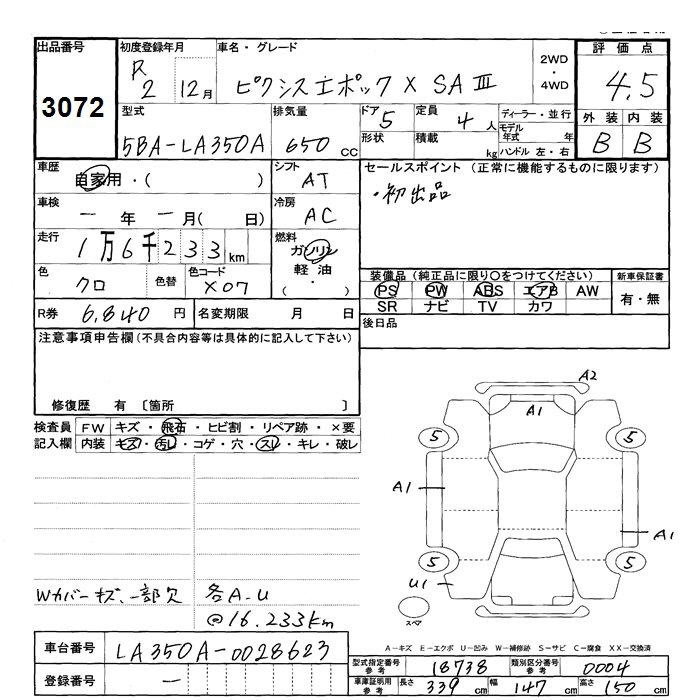 出品番号 3072
初度登録年月 R2 12月
車名・グレード ピクシスエポック X SAⅢ
2WD・4WD
評価点 4.5
外装 B 内装 B
型式 5BA-LA350A
排気量 650 cc
ドア 5 形状
定員 4人 積載 kg
ディーラー・並行
モデル年式 年
ハンドル 左・右
車歴 自家用・( )
シフト AT
セールスポイント (正常に機能するものに限ります)
・初出品
車検 ー年ー月(日)
冷房 AC
走行 1万6千233km
燃料 ガソリン 軽油 ( ・ )
色 クロ 色替 色コード X07
装備品 (純正品に限り○をつけてください)
PS PW ABS エアB AW
SR ナビ TV カワ
新車保証書 有・無
R券 6,840円 名変期限 月 日
後日品
注意事項申告欄(不具合内容等は具体的に記入して下さい)
修復歴 有 〔箇所 〕
検査員記入欄
FW キズ・飛石・ヒビ割・リペア跡・×要
内装 キズ・汚レ・コゲ・穴・スレ・キレ・破レ
A2
A1
5 5
A1
A1
5 5
U1
スペア
Wカバーキズ、一部欠 各A.U
@16.233km
A-キズ E-エクボ U-凹み W-補修跡 S-サビ C-腐食 XX-交換済
車台番号 LA350A-0028623
登録番号 ー
型式指定番号 参考 18738 類別区分番号 参考 0004
車庫証明用 参考 長さ 339cm 幅 147cm 高さ 150cm